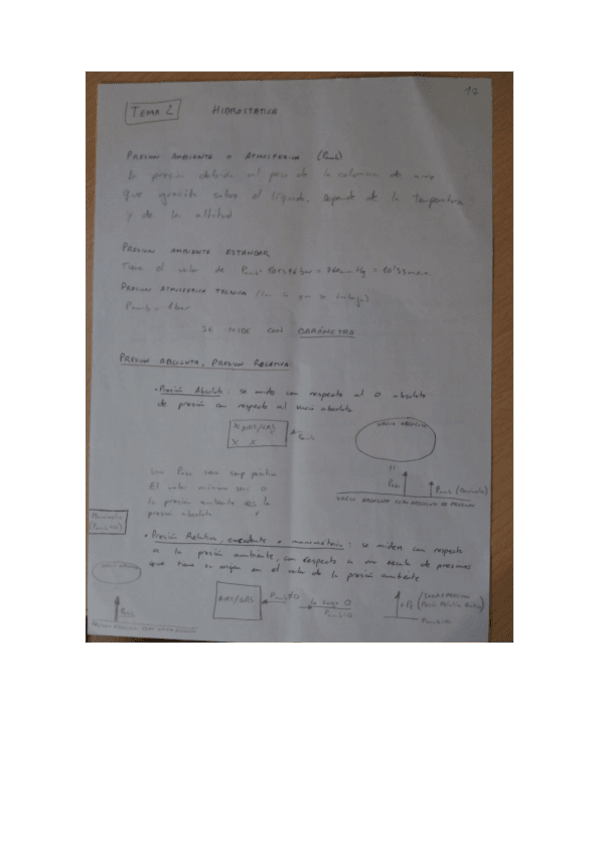 17
TEMA 2 HIDROSTATICA
PRESION AMBIENTE O ATMOSFERICA (Pamb)
la presión debida al peso de la columna de aire
que gravita sobre el líquido, depende de la Temperatura
y de la altitud
PRESION AMBIENTE ESTANDAR
Tiene el valor de Pamb = = 760mmHg = 10'33 m.c.a.
PRESION ATMOSFERICA TECNICA (con la que se trabaja)
Pamb = 1bar
SE MIDE CON BAROMETRO
PRESION ABSOLUTA, PRESION RELATIVA
• Presión Absoluta: se miden con respecto al 0 absoluto
de presión con respecto al vacio absoluto
AIRE/GAS
Pamb
VACIO ABSOLUTO
Las Pabs son siempre positivas
El valor mínimo será 0
la presión ambiente es la
presión absoluta
Pabs
Pamb
VACIO ABSOLUTO CERO ABSOLUTO DE PRESION
• Presión Relativa, excedente o manométrica: se miden con respecto
a la presión ambiente, con respecto a una escala de presiones
que tiene su origen en el valor de la presión ambiente
VACIO ABSOLUTO
AIRE/GAS
Pamb≠0
la hago 0
Pamb=0
SOBREPRESION
(Presión Relativa Positiva)
Pamb=0
Pabs